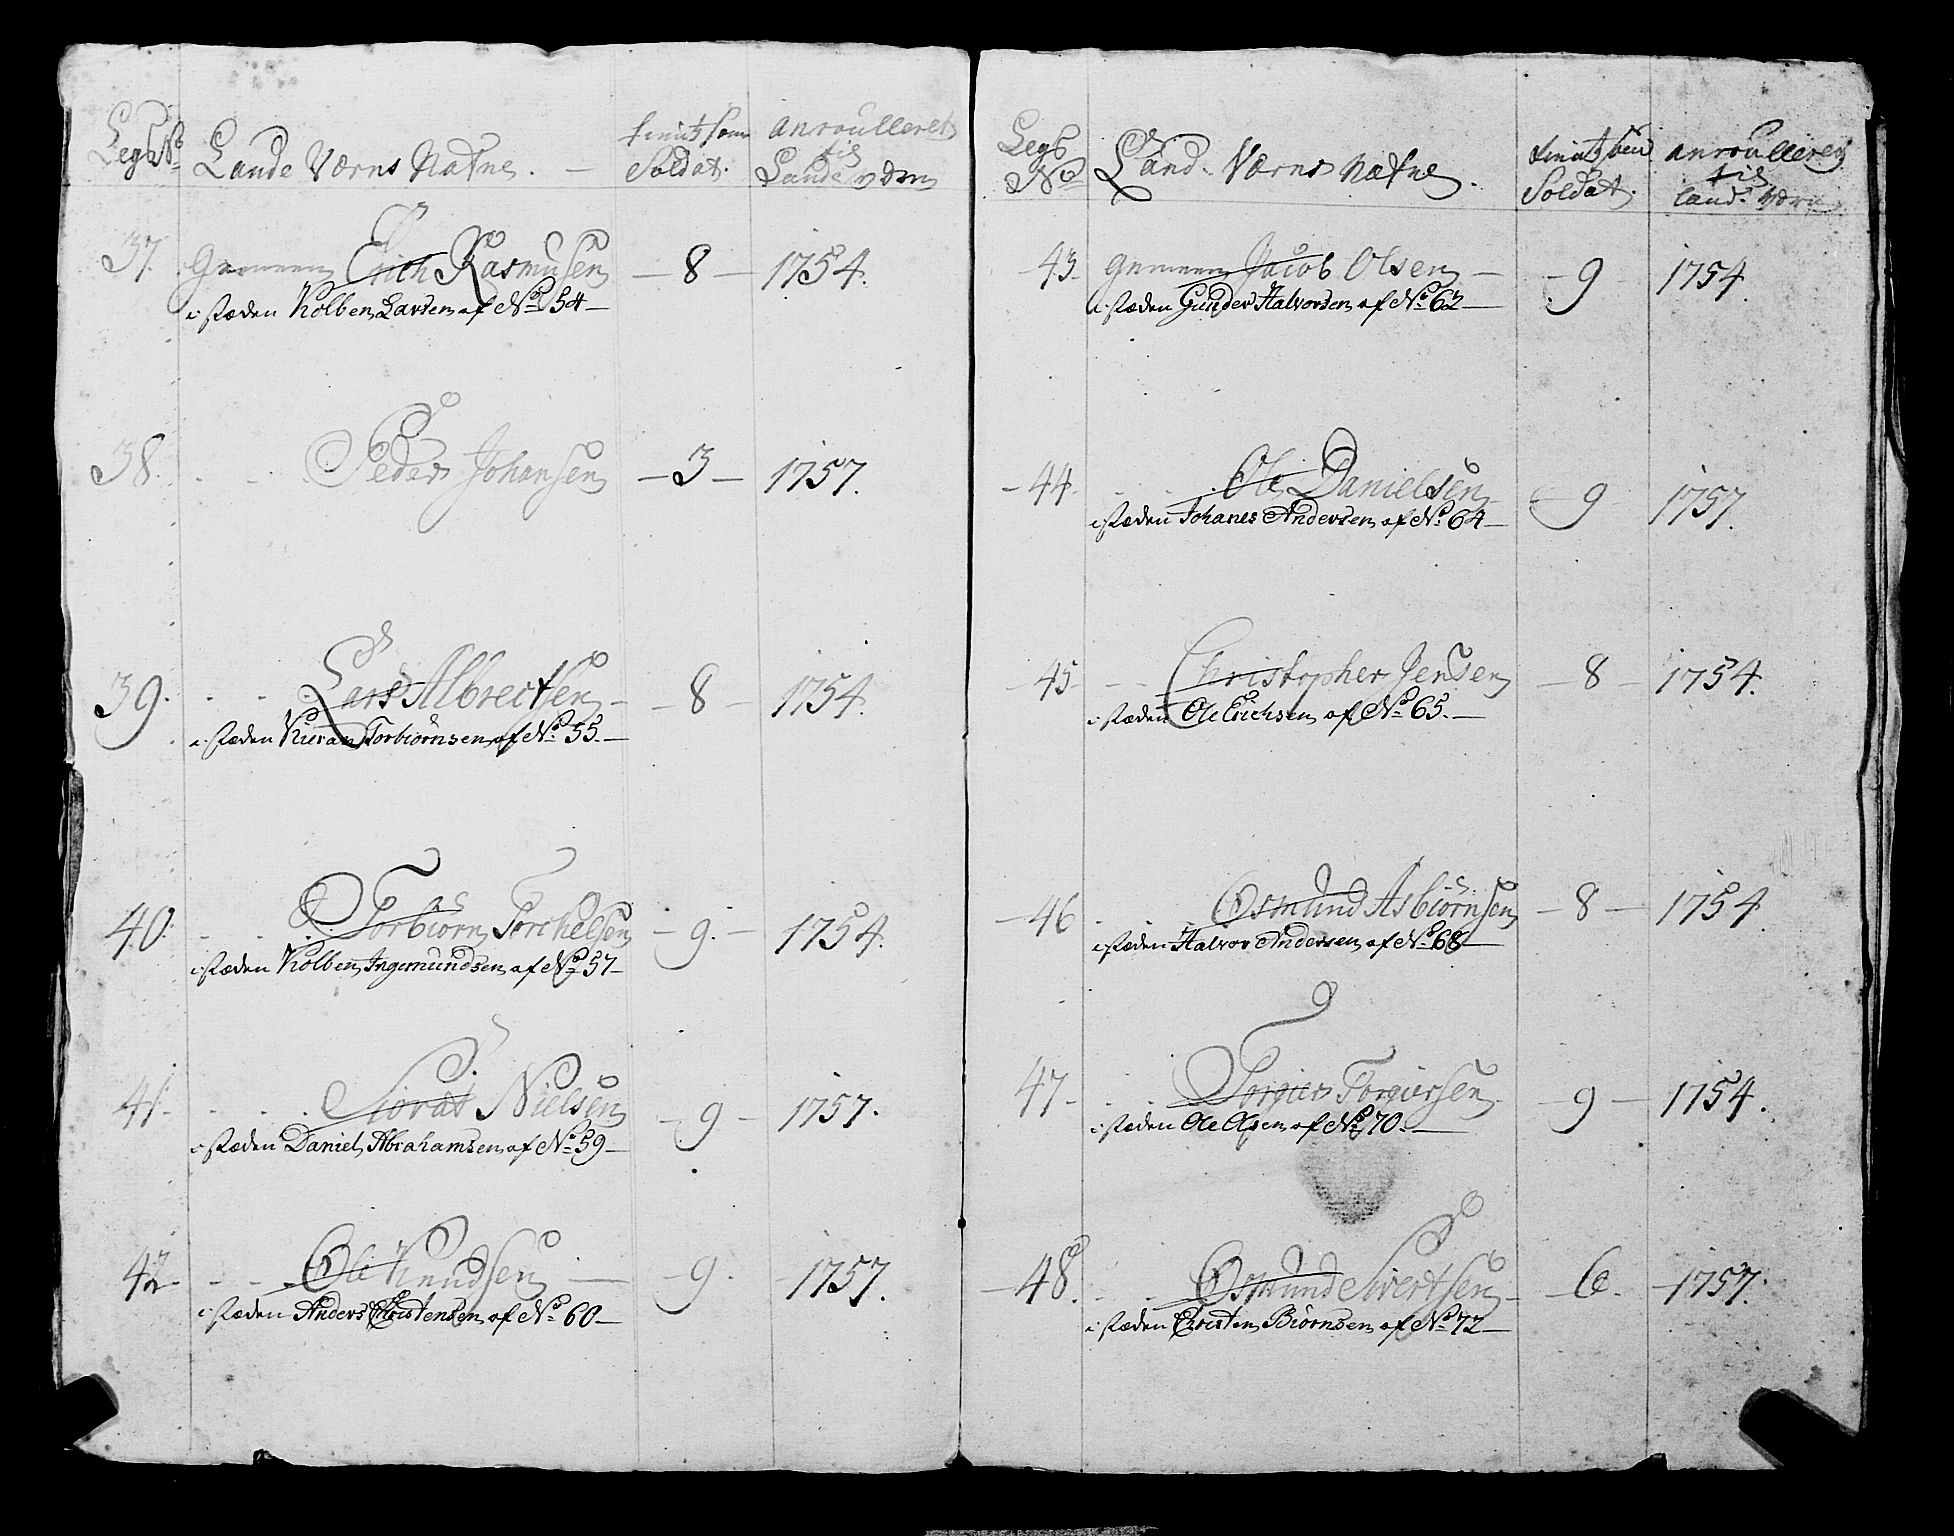 Legs No Lande Værns Nafne. tient som Soldat. anroulleret til Lande værn
37. Gemeen Erich Rasmusen — 8 — 1754.
i stæden Kolben Larsen af No 54 —
38. Peder Johansen — 3 — 1757.
39. Lars Albrectsen — 8 — 1754.
i stæden Torbiörnsen af No 55. —
40. Torbiörn Torchelsen — 9. — 1754.
i stæden Kolben Ingemundsen af No 57 —
41. Siovat Nielsen — 9 — 1757.
i stæden Daniel Abrahamsen af No 59 —
42 Ole Knudsen — 9. 1757.
i stæden Anders Christensen af No 60 —
Legs No Land Værns Nafne. tient som Soldat. anroulleret til Land Værn
43. Gemeen Jacob Olsen — 9 1754.
i stæden Gunder Halvorsen af No 62 —
44. Ole Danielsen — 9 1757.
i stæden Johanes Andersen af No 64 —
45 Christopher Jensen — 8 — 1754.
i stæden Ole Erichsen af No 65. —
46 Osmund Asbiörnsen — 8 — 1754
i stæden Halvor Andersen af No 68 —
47 Torgier Torgiersen — 9 — 1754.
i stæden Ole Olsen af No 70. —
48. Osmund Sivertsen — 6. — 1757.
i stæden Christen Biörnsen af No 72 —